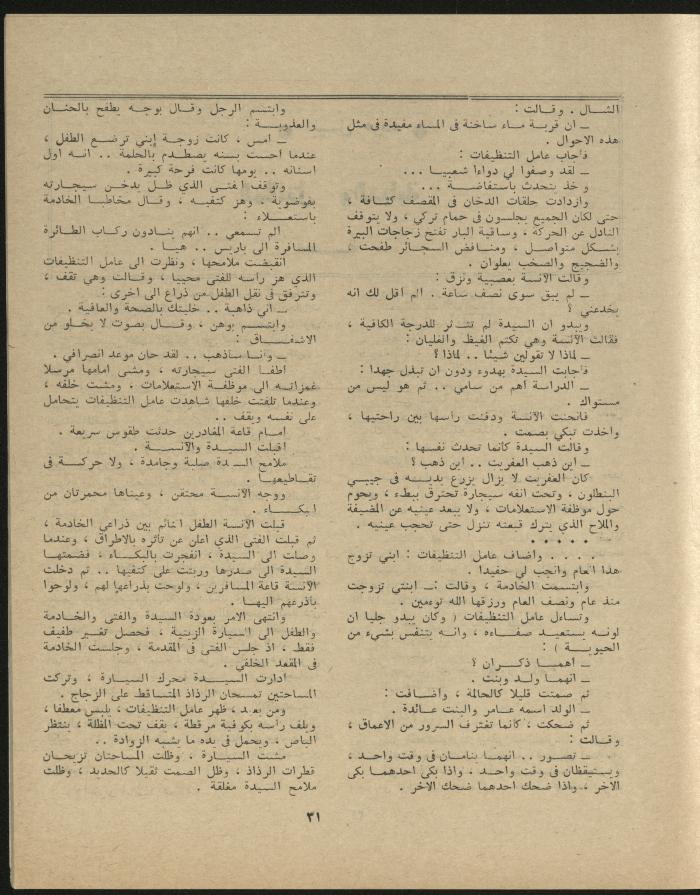 الشال . وقالت :
ــ ان قربة ماء ساخنة فى المساء مفيدة فى مثل
هذه الاحوال .
فأجاب عامل التنظيفات :
ــ لقد وصفوا لي دواءاً شعبيا ...
و خذ يتحدث باستفاضة ...
وازدادت حلقات الدخان فى المقصف كثافة ،
حتى لكان الجميع يجلسون في حمام تركي ، ولا يتوقف
النادل عن الحركة ، وساقية البار تفتح زجاجات البيرة
بشكل متواصل ، ومنافض السجائر طفحت ،
والضجيج والصخب يعلوان .
وقالت الآنسة بعصبية ونزق :
ــ لم يبق سوى نصف ساعة . الم اقل لك انه
يخدعني ؟
ويبدو ان السيدة لم تتأثر للدرجة الكافية ،
فقالت الآنسة وهي تكتم الغيظ والغليان :
ــ لماذا لا تقولين شيئا .. لماذا ؟
فأجابت السيدة بهدوء ودون ان تبذل جهدا :
ــ الدراسة أهم من سامي .. ثم هو ليس من
مستواك .
فانحنت الآنسة ودفنت رأسها بين راحتيها ،
واخذت تبكي بصمت .
وقالت السيدة كأنما تحدث نفسها :
ــ اين ذهب العفريت .. اين ذهب ؟
كان العفريت لا يزال يزرع يديه فى جيبي
البنطلون ، وتحت انفه سيجارة تحترق ببطء ، ويحوم
حول موظفة الاستعلامات ، ولا يبعد عينيه عن المضيفة
والملاح الذي يترك قبعته تنزل حتى تحجب عينيه .
• • • • •
. . . . وأضاف عامل التنظيفات : ابني تزوج
هذا العام وانجب لي حفيدا .
وابتسمت الخادمة ، وقالت :ــ ابنتي تزوجت
منذ عام ونصف العام ورزقها الله توءمين .
وتساءل عامل التنظيفات ( وكان يبدو جليا ان
لونه يستعيد صفاءه ، وانه يتنفس بشيء من
الحيوية ) :
ــ أهما ذكران ؟
ــ انهما ولد وبنت .
ثم صمتت قليلا كالحالمة ، واضافت :
ــ الولد اسمه عامر والبنت عائدة .
ثم ضحكت ، كأنما تغترف السرور من الاعماق ،
وقالت :
ــ تصور .. انهما ينامان في وقت واحد ،
ويستيقظان فى وقت واحد . واذا بكى احدهما بكى
الآخر ، واذا ضحك احدهما ضحك الآخر .
وابتسم الرجل وقال بوجه يطفح بالحنان
والعذوبة :
ــ امس ، كانت زوجة إبني ترضع الطفل ،
عندما احست بسنه يصطدم بالحلمة .. انه اول
اسنانه .. يومها كانت فرحة كبيرة .
وتوقف الفتى الذي ظل يدخن سيجارته
بفوضوية . وهز كتفيه ، وقال مخاطبا الخادمة
باستعلاء :
الم تسمعي .. انهم ينادون ركاب الطائرة
المسافرة الى باريس .. هيا .
انقبضت ملامحها ، ونظرت الى عامل التنظيفات
الذي هز رأسه للفتى محييا ، وقالت وهي تقف ،
وتترفق في نقل الطفل من ذراع الى اخرى :
ــ اني ذاهبة .. خليتك بالصحة والعافية .
وابتسم بوهن ، وقال بصوت لا يخلو من
الاشفاق :
ــ وانا سأذهب .. لقد حان موعد انصرافي .
اطفأ الفتى سيجارته ، ومشى امامها مرسلا
غمزاته الى موظفة الاستعلامات . ومشت خلفه ،
وعندما تلفتت خلفها شاهدت عامل التنظيفات يتحامل
على نفسه ويقف ..
امام قاعة المغادرين حدثت طقوس سريعة .
اقبلت السيدة والآنسة .
ملامح السيدة صلبة وجامدة ، ولا حركة فى
تقاطيعها .
ووجه الآنسة محتقن ، وعيناها محمرتان من
البكاء .
قبلت الآنسة الطفل النائم بين ذراعي الخادمة ،
ثم قبلت الفتى الذي اعلن عن تأثره بالاطراق ، وعندما
وصلت الى السيدة ، انفجرت بالبكاء ، فضمتها
السيدة الى صدرها وربتت على كتفيها .. ثم دخلت
الآنسة قاعة المسافرين ، ولوحت بذراعها لهم ، ولوحوا
بأذرعهم اليها .
وانتهى الامر بعودة السيدة والفتى والخادمة
والطفل الى السيارة الزيتية ، فحصل تغير طفيف
فقط ، اذ جلس الفتى فى المقدمة ، وجلست الخادمة
في المقعد الخلفي .
ادارت السيدة محرك السيارة ، وتركت
المساحتين تمسحان الرذاذ المتساقط على الزجاج .
ومن بعيد ، ظهر عامل التنظيفات ، يلبس معطفا ،
ويلف رأسه بكوفية مرقطة ، يقف تحت المظلة ، ينتظر
الباص ، ويحمل في يده ما يشبه الزوادة ..
مشت السيارة ، وظلت المساحتان تزيحان
قطرات الرذاذ ، وظل الصمت ثقيلا كالحديد ، وظلت
ملامح السيدة مغلقة .
٣١